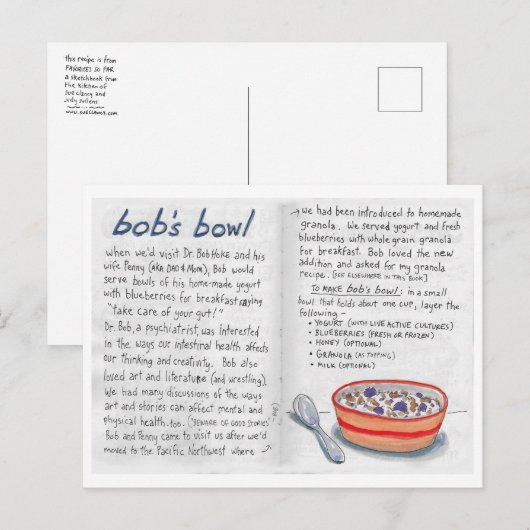 this recipe is from
FAVORITES SO FAR
a sketchbook from
the kitchen of
sue clancy and
judy sullens
www.sueclancy.com
bob's bowl
when we'd visit Dr. Bob Hoke and his
wife Penny (AKA DAD & MOM), Bob would
serve bowls of his home-made yogurt
with blueberries for breakfast saying
"take care of your gut!"
Dr. Bob, a psychiatrist, was interested
in the ways our intestinal health affects
our thinking and creativity. Bob also
loved art and literature (and wrestling).
We had many discussions of the ways
art and stories can affect mental and
physical health too. ("BEWARE OF GOOD STORIES"
Bob and Penny came to visit us after we'd
moved to the Pacific Northwest where →
→ we had been introduced to homemade
granola. We served yogurt and fresh
blueberries with whole grain granola
for breakfast. Bob loved the new
addition and asked for my granola
recipe. [SEE ELSEWHERE IN THIS BOOK]
TO MAKE bob's bowl: in a small
bowl that holds about one cup, layer the
following -
• YOGURT (WITH LIVE ACTIVE CULTURES)
• BLUEBERRIES (FRESH OR FROZEN)
• HONEY (OPTIONAL)
• GRANOLA (AS TOPPING)
• MILK (OPTIONAL)